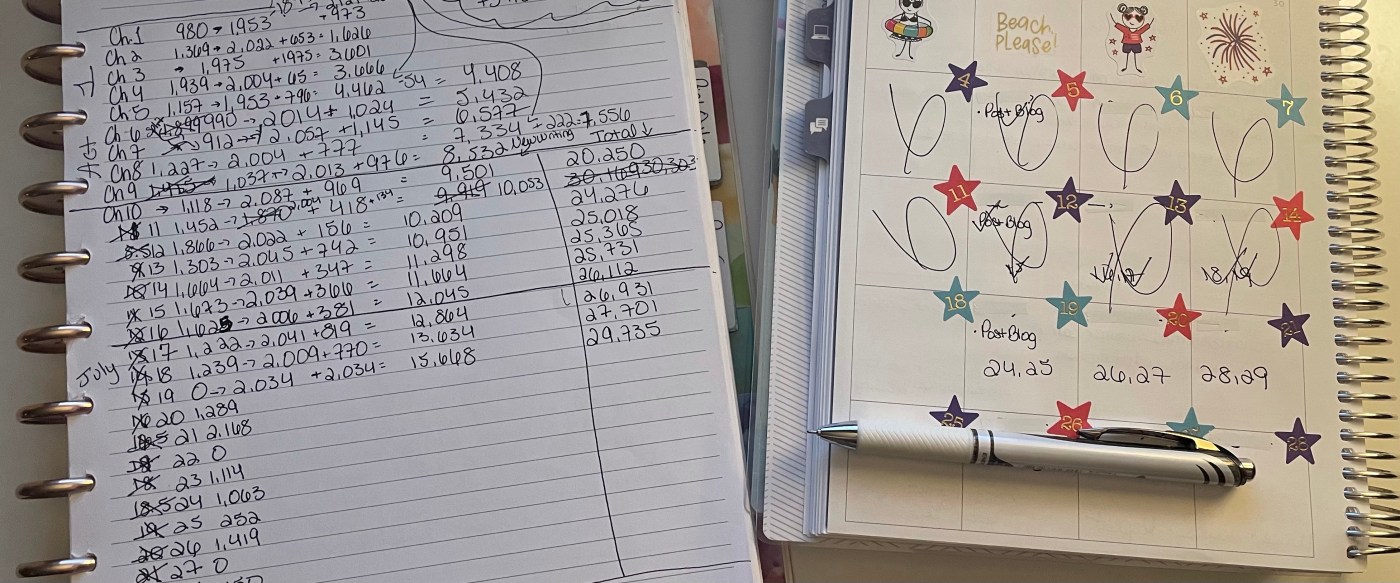 +973
Ch.1 980 → 1,953
Ch 2 1,369 → 2,022 + 653 = 1,626
Ch 3 → 1,975 +1975 = 3,601
Ch 4 1,939 → 2,004 + 65 = 3,666
Ch 5 1,157 → 1,953 + 796 = 4,462 - 54 = 4,408
Ch 6 990 → 2014 + 1,024 = 5,432
Ch 7 912 → 2,057 + 1,145 = 6,577
Ch 8 1,227 → 2,004 + 777 = 7,334 + 222 = 7,556
Ch 9 1,037 → 2,013 + 976 = 8,532 New writing Total ↓
Ch 10 → 1,118 → 2,087 + 969 = 9,501 20,250
11 1,452 → 1,870 2,004 + 418 +134 = 9,919 10,053 30,303
12 1,866 → 2,022 + 156 = 10,209 24,276
13 1,303 → 2,045 + 742 = 10,951 25,018
14 1,664 → 2,011 + 347 = 11,298 25,365
15 1,673 → 2,039 + 366 = 11,664 25,731
16 1,625 → 2006 + 381 = 12,045 26,112
July 17 1,222 → 2,041 + 819 = 12,864 26,931
18 1,239 → 2,009 + 770 = 13,634 27,701
19 0 → 2,034 + 2,034 = 15,668 29,735
20 1,289
21 2,168
22 0
23 1,114
24 1,063
25 252
26 1,419
27 0
Beach, Please!
4 5 6 7
• Post Blog
11 12 13 14
• Post Blog
18 19 20 21
• Post Blog
24,25 26,27 28,29
25 26 28